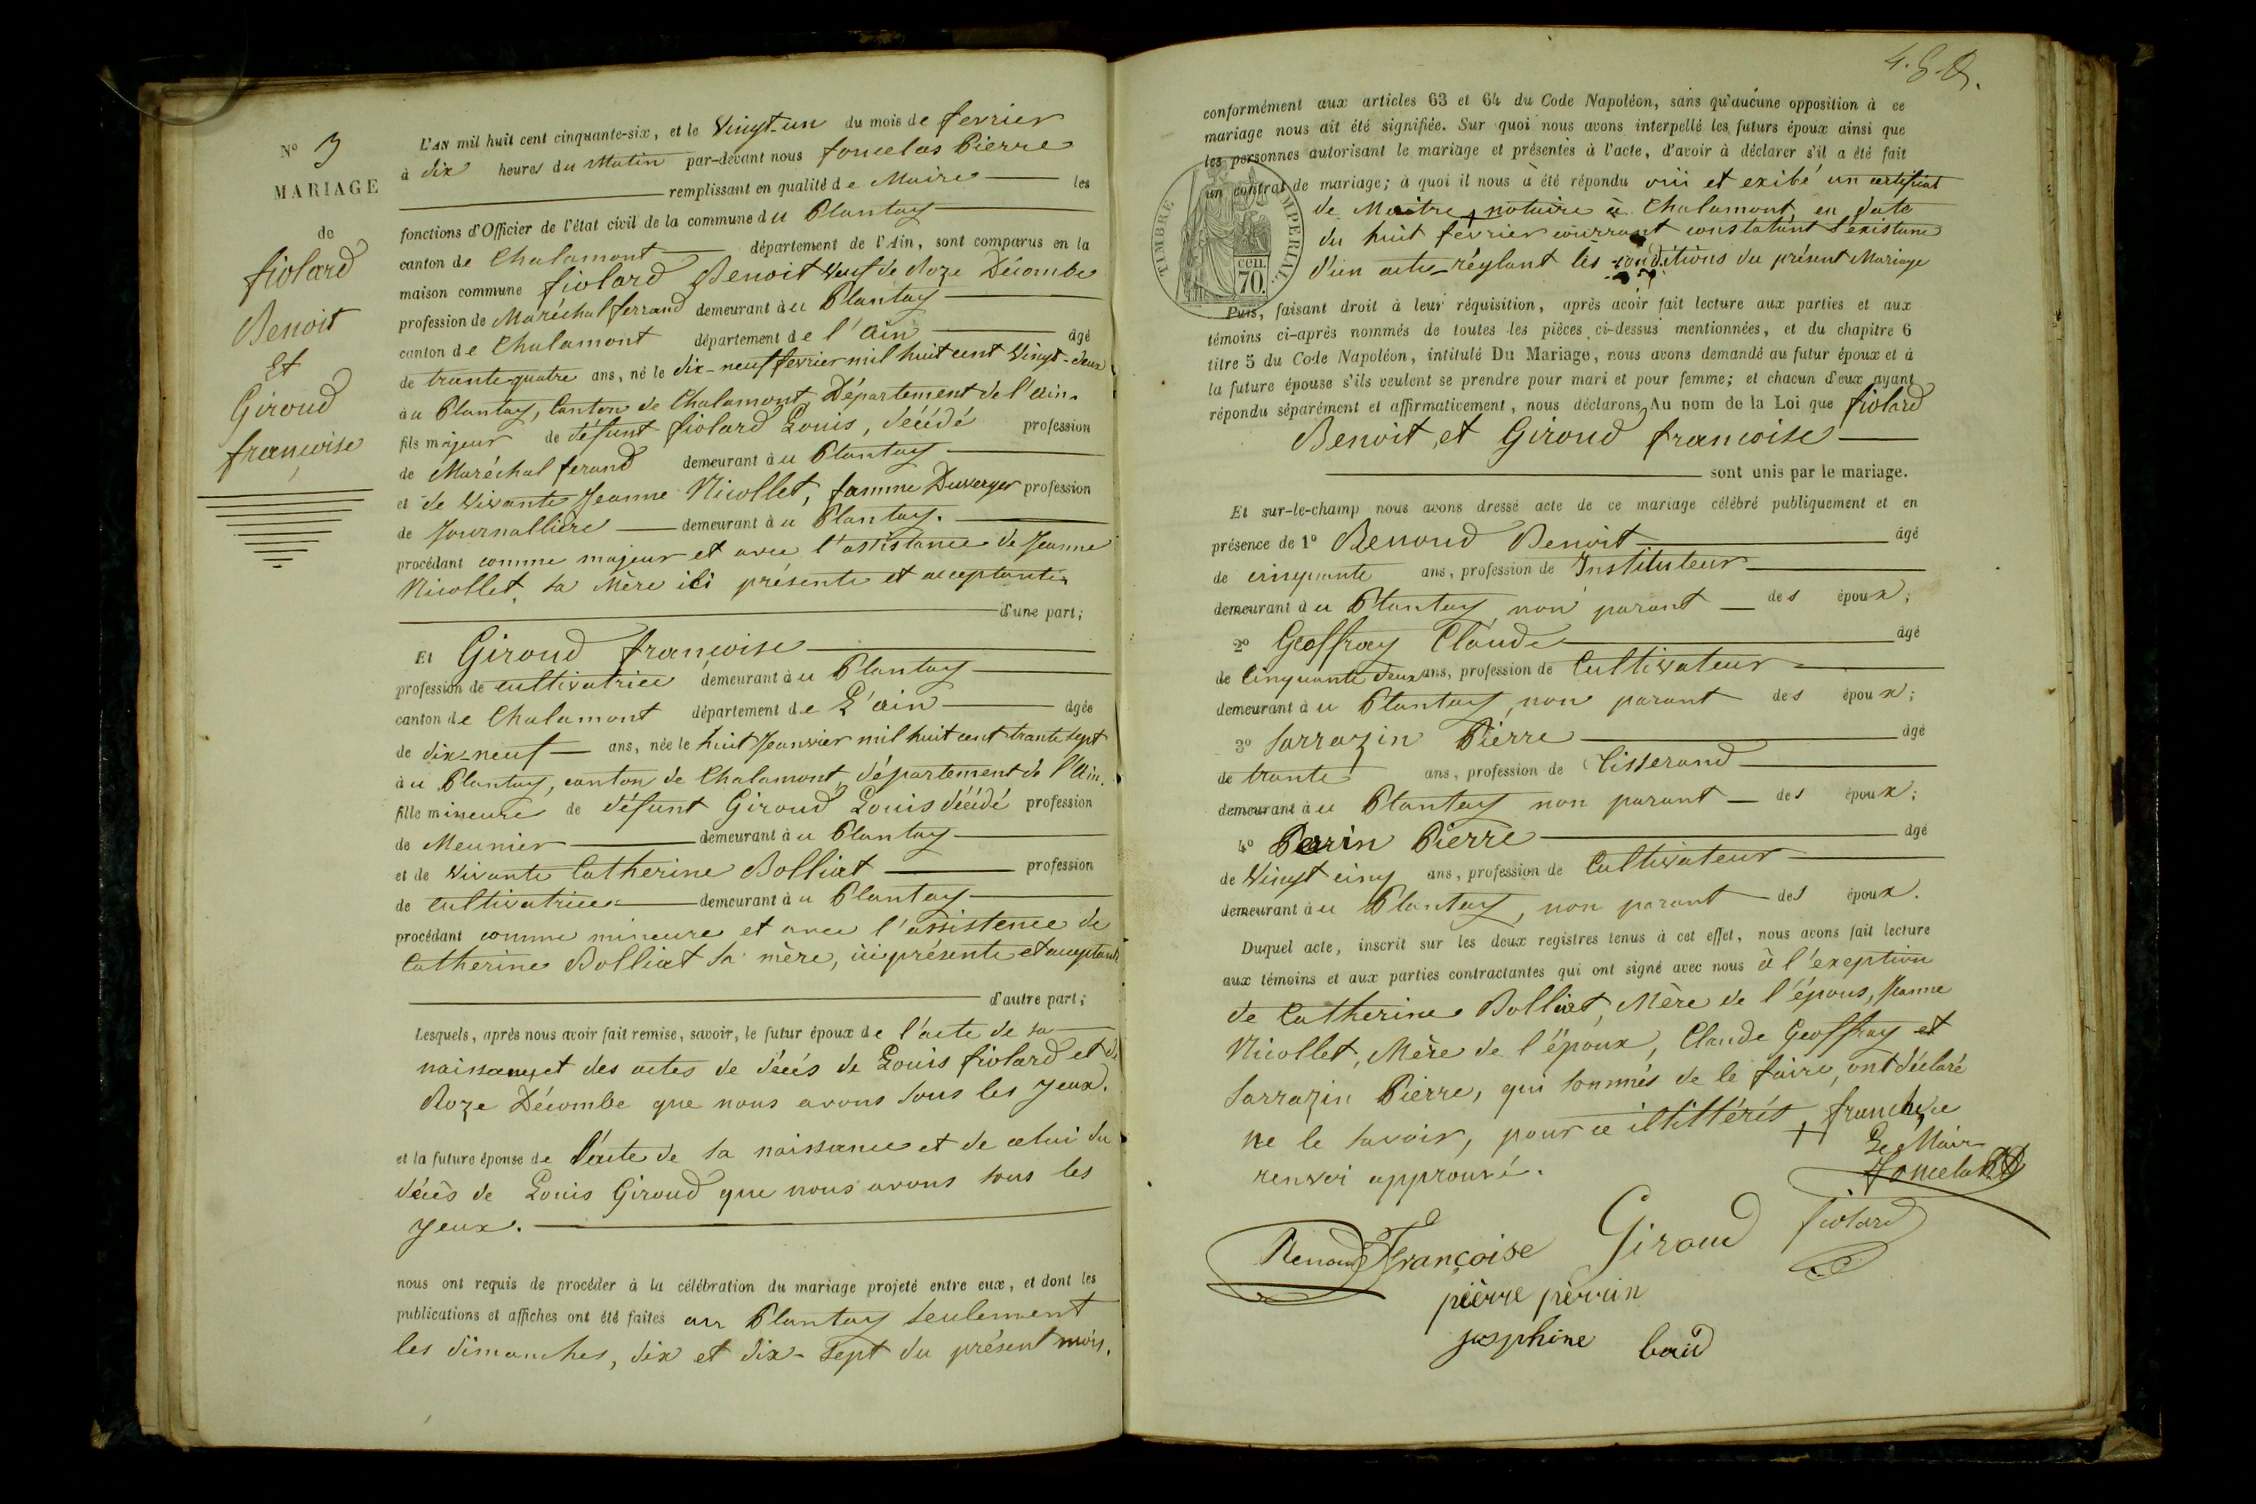 N° 3
MARIAGE
de
fiolard
Benoit
Et
Giroud
francoise
L'AN mil huit cent cinquante-six, et le Vingt-un du mois de fevrier
à dix heures du Matin par-devant nous foncelas Pierre
remplissant en qualité de Maire les
fonctions d'Officier de l'état civil de la commune du Plantay
canton de Chalamont département de l'Ain, sont comparus en la
maison commune fiolard Benoit Veuf de Roze Décombe
profession de Maréchal ferrand demeurant à u Plantay
canton de Chalamont département de l'ain âgé
de trante quatre ans, né le dix-neuf fevrier mil huit cent Vingt-deux
à u Plantay, Canton de Chalamont, Département de l'ain.
fils majeur de défunt fiolard Louis, décédé profession
de Maréchal ferand demeurant à u Plantay
et de vivante Jeanne Nicollet, famme Duverger profession
de Journallière demeurant à u Plantay.
procédant comme majeur et avec l'assistance de Jeanne
Nicollet, sa Mère ici présente et acceptante
d'une part;
Et Giroud francoise
profession de cultivatrice demeurant à u Plantay
canton de Chalamont département de L'ain âgée
de dix-neuf ans, née le huit Jeanvier mil huit cent trante sept
à u Plantay, canton de Chalamont, département de l'Ain.
fille mineure de défunt Giroud Louis décédé profession
de Meunier demeurant à u Plantay
et de vivante Catherine Bolliat profession
de cultivatrice demeurant à u Plantay
procédant comme mineure et avec l'assistence de
Catherine Bolliat sa mère, ici présente et acceptante
d'autre part;
Lesquels, après nous avoir fait remise, savoir, le futur époux de l'acte de sa
naissance, et des actes de décés de Louis fiolard et de
Roze Décombe que nous avons sous les yeux.
et la future épouse de l'acte de sa naissance et de celui du
décès de Louis Giroud que nous avons sous les
yeux.
nous ont requis de procéder à la célébration du mariage projeté entre eux, et dont les
publications et affiches ont été faites au Plantay seulement
les dimanches, dix et dix-sept du présent mois.
conformément aux articles 63 et 64 du Code Napoléon, sans qu'aucune opposition à ce
mariage nous ait été signifiée. Sur quoi nous avons interpellé les futurs époux ainsi que
les personnes autorisant le mariage et présentes à l'acte, d'avoir à déclarer s'il a été fait
un contrat de mariage; à quoi il nous a été répondu oüi et exibé un certificat
de Maitre + notaire à Chalamont en date
du huit février courrant constatant l'existance
d'un acte réglant les conditions du présent Mariage
TIMBRE IMPERIAL
cen.
70.
Puis, faisant droit à leur réquisition, après avoir fait lecture aux parties et aux
témoins ci-après nommés de toutes les pièces ci-dessus mentionnées, et du chapitre 6
titre 5 du Code Napoléon, intitulé Du Mariage, nous avons demandé au futur époux et à
la future épouse s'ils veulent se prendre pour mari et pour femme; et chacun d'eux ayant
répondu séparément et affirmativement, nous déclarons Au nom de la Loi que fiolard
Benoit, et Giroud francoise
sont unis par le mariage.
Et sur-le-champ nous avons dressé acte de ce mariage célébré publiquement et en
présence de 1° Renoud Benoit âgé
de cinquante ans, profession de Instituteur
demeurant à u Plantay non parant des époux;
2° Geoffray Claude âgé
de Cinquante deux ans, profession de Cultivateur
demeurant à u Plantay, non parant des époux;
3° Sarrazin Pierre âgé
de trante ans, profession de Tisserand
demeurant à u Plantay non parant des époux;
4° Perrin Pierre âgé
de Vingt cinq ans, profession de Cultivateur
demeurant à u Plantay, non parant des époux.
Duquel acte, inscrit sur les deux registres tenus à cet effet, nous avons fait lecture
aux témoins et aux parties contractantes qui ont signé avec nous à l'exeption
de Catherine Bolliat, Mère de l'épous, Jeanne
Nicollet, Mère de l'époux, Claude Geoffray et
Sarrazin Pierre, qui sommés de le faire, ont déclaré
ne le savoir, pour ce illittérés, + franchise
renvoi approuvé.
Le Maire
foncelas
fiolard
Renoud Françoise Giroud
pierre perrin
josphine baud